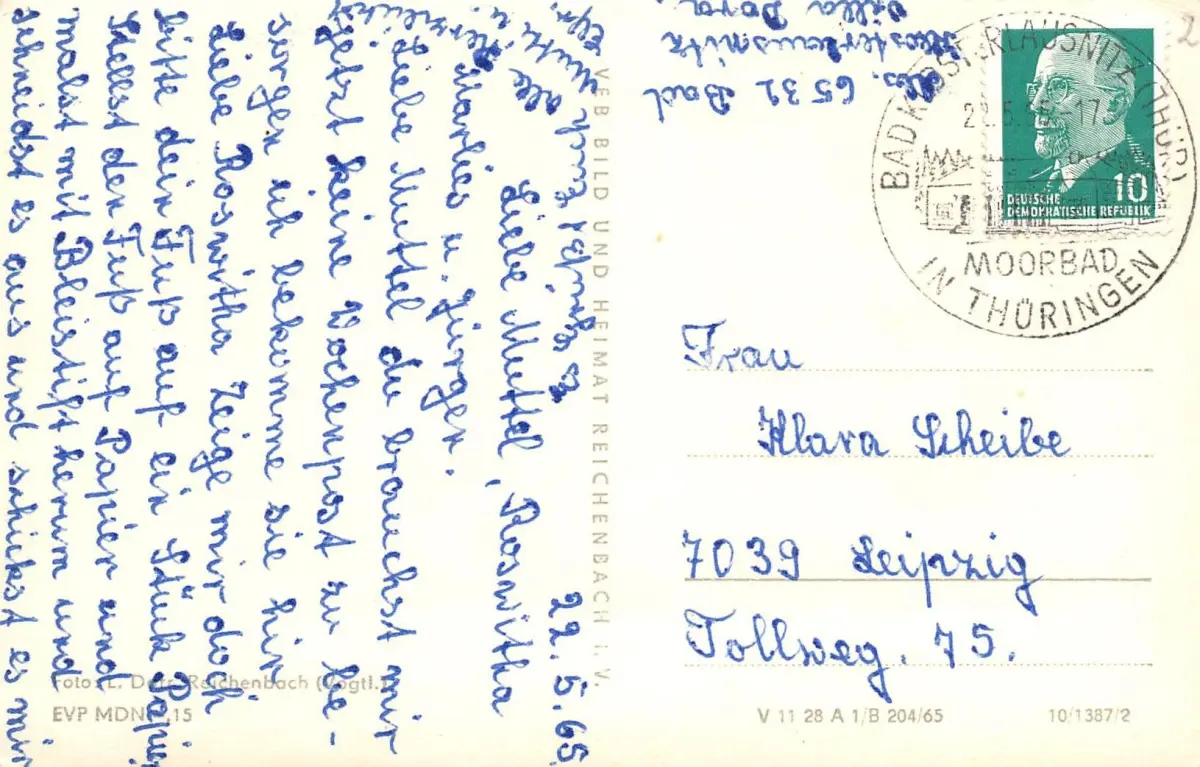 22. 5. 65.
Liebe Muttel, Roswitha
Marlies u. Jürgen.
Liebe Muttel du brauchst mir
jetzt keine Wochenpost zu be-
sorgen ich bekomme sie hir
Liebe Roswitha Zeige mir doch
bitte dein Fuß auf ein Stück Papier
stellst den Fuß auf Papier und
malst mit Bleistift herum und
schneidst es aus und schickst es mir
alle
Abs. 6532 Bad
Klosterlausnitz
Villa Dora
VEB BILD UND HEIMAT REICHENBACH I. V.
Foto: L. Dörr, Reichenbach (Vogtl.)
EVP MDN 0,15
BAD KLOSTERLAUSNITZ (THÜR)
22.5.65-17
MOORBAD
IN THÜRINGEN
10
DEUTSCHE
DEMOKRATISCHE REPUBLIK
Frau
Klara Scheibe
7039 Leipzig
Tollweg. 75.
V 11 28 A 1/B 204/65
10/1387/2